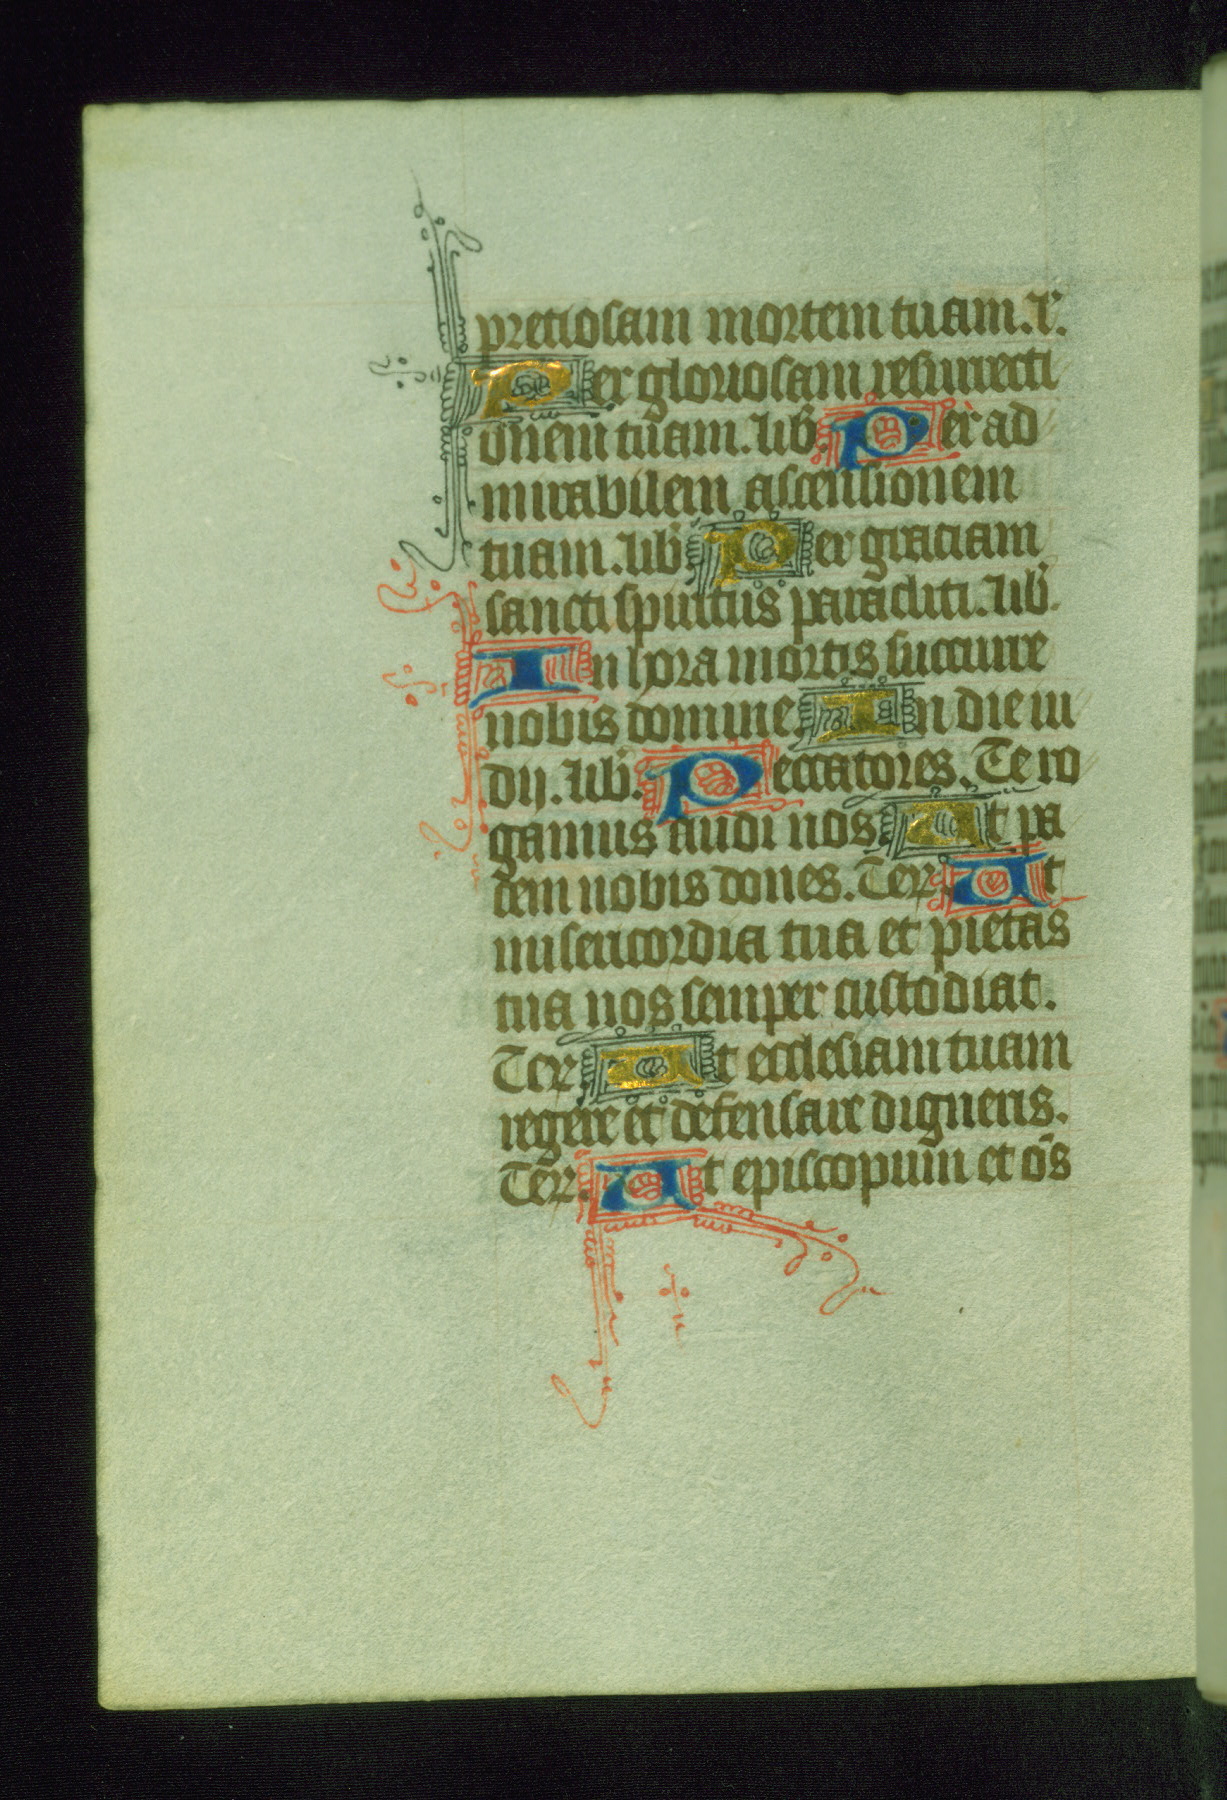 pretiosam mortem tuam. L.
Per gloriosam resurrecti
onem tuam. lib̃. Per ad
mirabilem ascensionem
tuam. lib̃ Per graciam
sancti spiritus paracliti. lib̃.
In hora mortis succurre
nobis domine. In die iu
dij. lib̃. Peccatores. Te ro
gamus audi nos. Ut pa
cem nobis dones. Ter. Ut
misericordia tua et pietas
tua nos semper custodiat.
Ter. Ut ecclesiam tuam
regere et defensare digneris.
Ter. Ut episcopum et oĩs